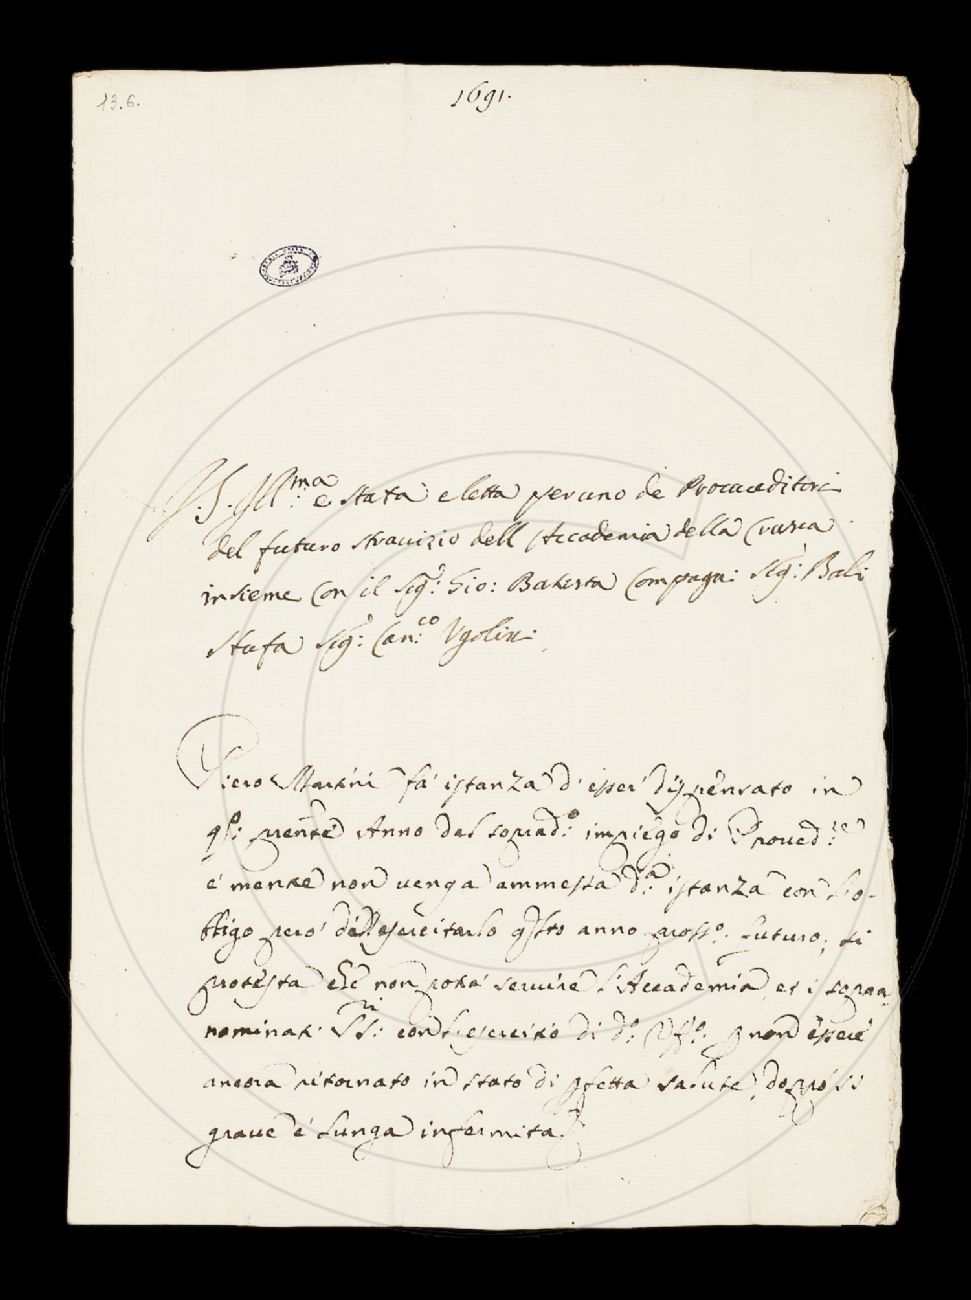 13.6.
1691.
V.S. Ill.ma è stata eletta per uno de Proccueditori
del futuro strauizio dell Accademia della Crusca
insieme con il Sig.r Gio: Batista Compagni Sig.r Balì
Stufa Sig.r Can.co Vgolini
Piero Martini fà istanza d'esser dispensato in
q.to p̃ente Anno dal soprad.o impiego di Proued.re
e' mentre non uenga ammessa d.a istanza con l'o-
bligo però di esercitarlo q̃sto anno pross.o futuro, si
protesta che non potrà seruire l'Accademia, et i sopra
nominati SS.ri con l'esercitio di d.o Uff.o p non essere
ancora ritornato in stato di p̃fetta salute, doppò sì
graue e' lunga infermità